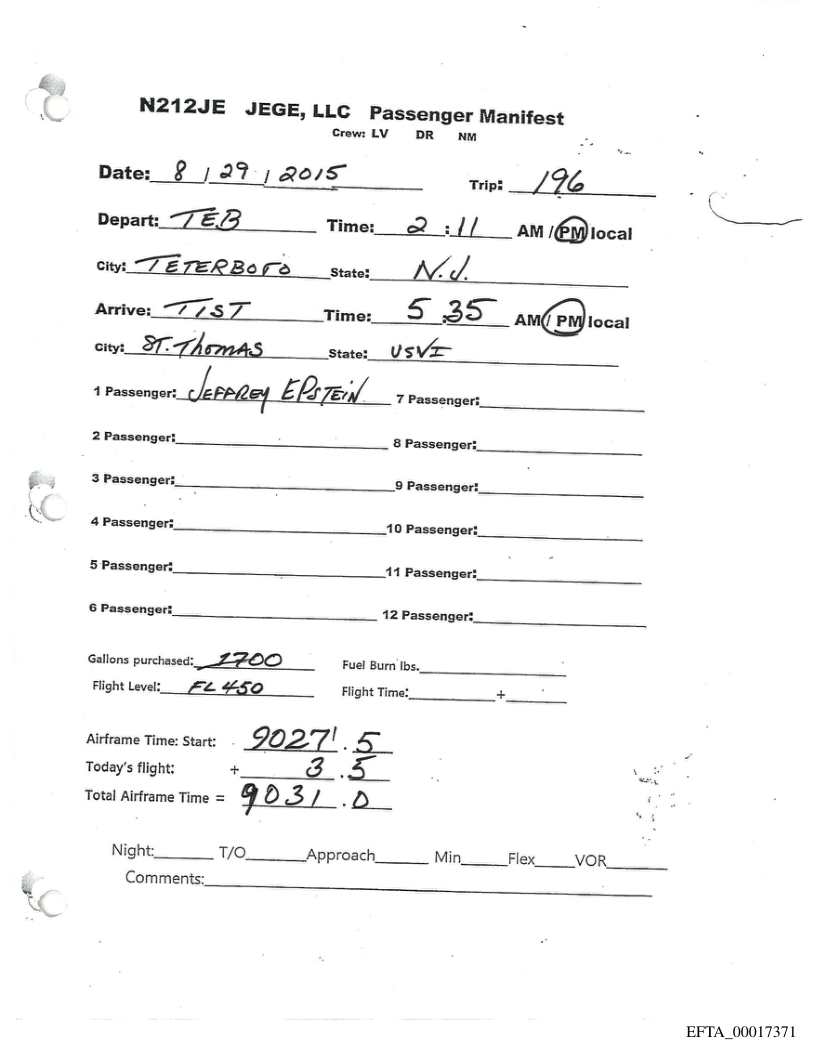 N212JE JEGE, LLC Passenger Manifest
Crew: LV DR NM
Date: 8 / 29 / 2015 Trip: 196
Depart: TEB Time: 2 : 11 AM / PM local
City: TETERBORO State: N.J.
Arrive: TIST Time: 5 :35 AM / PM local
City: ST. THOMAS State: USVI
1 Passenger: JEFFREY EPSTEIN 7 Passenger:
2 Passenger: 8 Passenger:
3 Passenger: 9 Passenger:
4 Passenger: 10 Passenger:
5 Passenger: 11 Passenger:
6 Passenger: 12 Passenger:
Gallons purchased: 1700 Fuel Burn lbs.
Flight Level: FL 450 Flight Time: +
Airframe Time: Start: 9027 . 5
Today's flight: + 3 . 5
Total Airframe Time = 9031 . 0
Night: T/O Approach Min Flex VOR
Comments:
EFTA_00017371